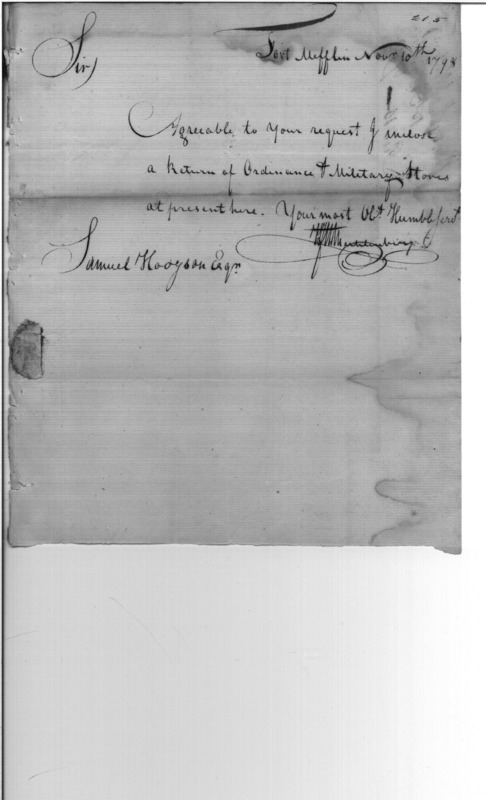 215
Fort Mifflin Novr 10th 1798
Sir
Agreeable to your request I inclose
a Return of Ordinance & Military Stores
at present here. Your most Obt Humbl Sert
Samuel Hodgson Esqr